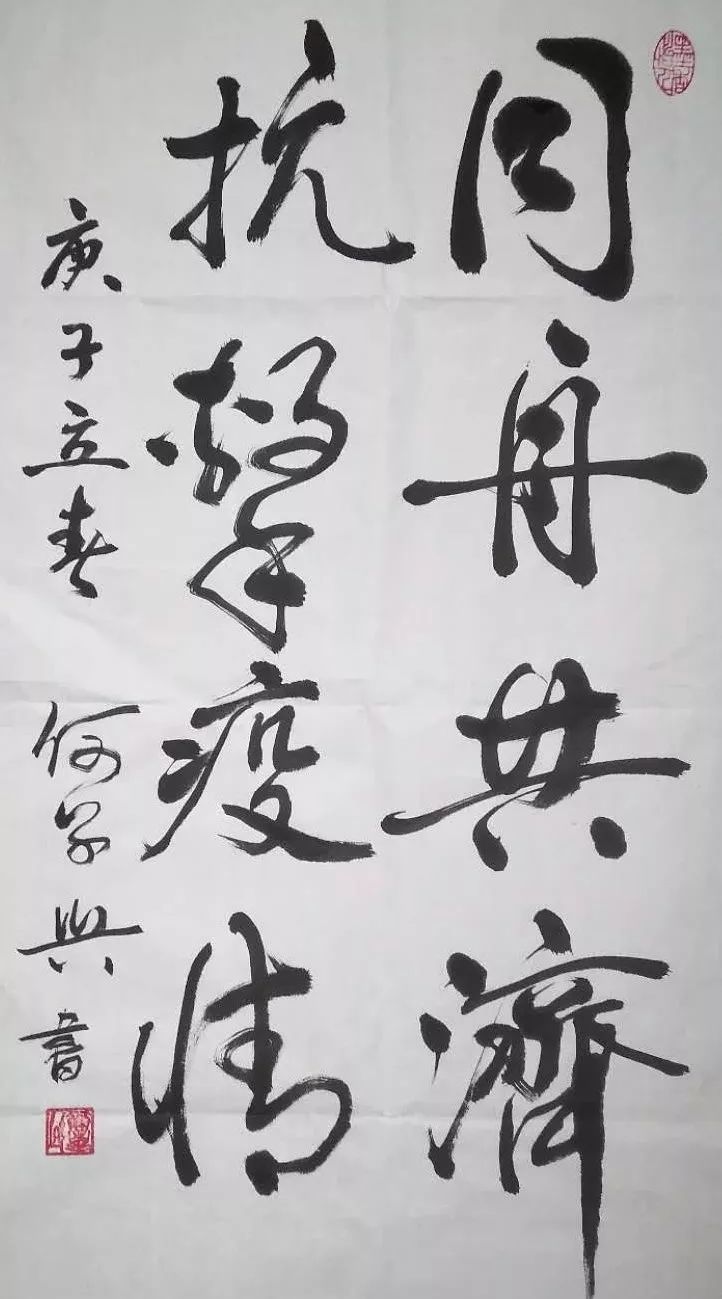 同舟共濟
抗擊疫情
庚子立春 何学興書